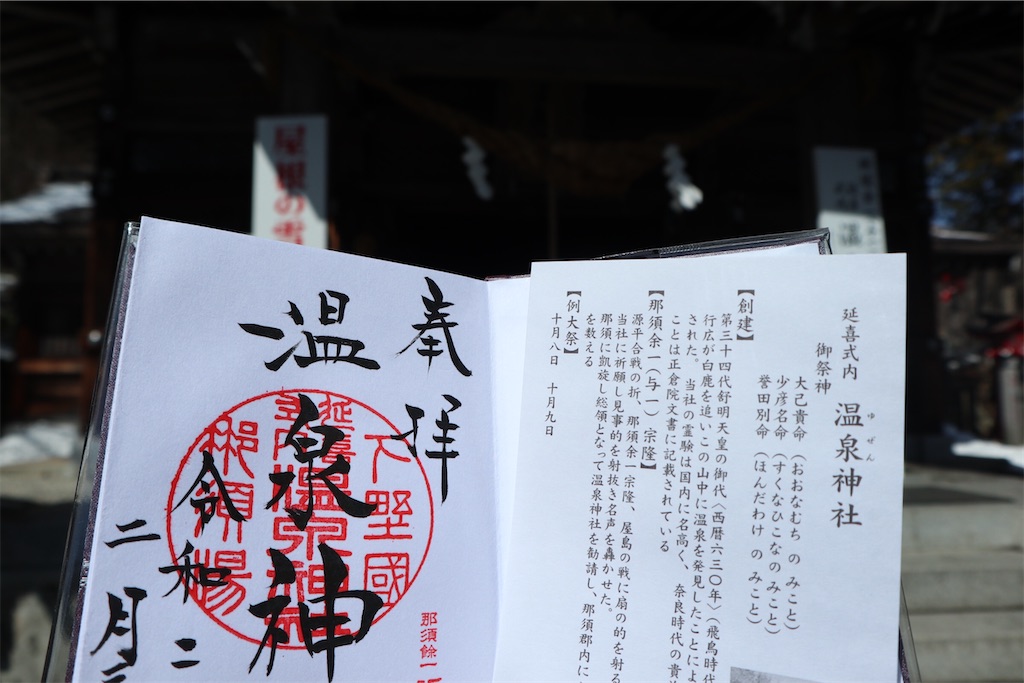 奉拝
温泉神
令和二
二月
下野國
延喜式内
温泉神
那須湯
那須餘一
屋根の雪
延喜式内
温泉神社
ゆぜん
御祭神
大己貴命(おおなむち の みこと)
少彦名命(すくなひこなの みこと)
誉田別命(ほんだわけ の みこと)
【創建】
第三十四代舒明天皇の御代〈西暦六三〇年〉(飛鳥時代
行広が白鹿を追いこの山中に温泉を発見したことによ
された。 当社の霊験は国内に名高く、 奈良時代の貴
ことは正倉院文書に記載されている
【那須余一(与一) 宗隆】
源平合戦の折、那須余一宗隆、屋島の戦に扇の的を射る
当社に祈願し見事的を射抜き名声を轟かせた。
那須に凱旋し総領となって温泉神社を勧請し、那須郡内に
を数える
【例大祭】
十月八日 十月九日
温